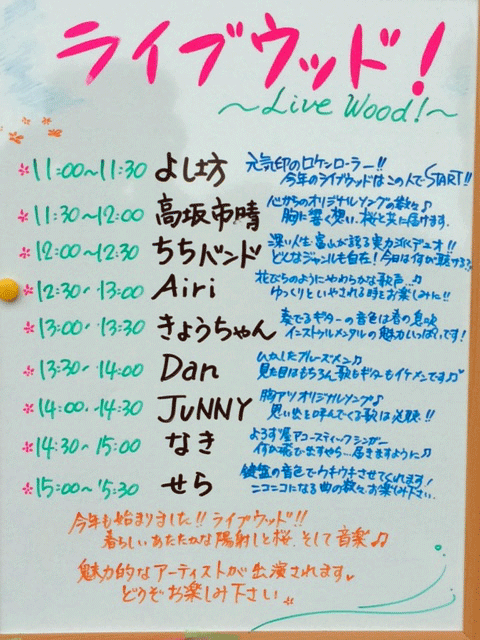 ライブウッド!
～Live Wood!～
*11:00～11:30 よし坊 元気印のロケンローラー!!
今年のライブウッドはこの人でSTART!!
*11:30～12:00 高坂市晴 心からのオリジナルソングの数々♪
胸に響く想い、桜と共に届けます.
*12:00～12:30 ちちバンド 深い人生と富山が誇る実力派デュオ!!
どんなジャンルも自在!今日は何が聴ける?
*12:30～13:00 Airi 花びらのようにやわらかな歌声…♪
ゆっくりといやされる時とお楽しみに!!
*13:00～13:30 きょうちゃん 奏でるギターの音色は春の息吹
インストゥルメンタルの魅力いっぱいです!
*13:30～14:00 Dan ブルースメン♪
見た目はもちろん歌もギターもイケメンです♪
*14:00～14:30 JUNNY 胸アツオリジナルソング♪
思い出を呼んでくる歌は必聴!!
*14:30～15:00 なき よろず屋アコースティックシンガー
何が飛び出すやら…届きますように♪
*15:00～15:30 せら 鍵盤の音色でウキウキさせてくれます!
ニコニコになる曲の数々お楽しみ下さい.
今年も始まりました!!ライブウッド!!
春らしいあたたかな陽射しと桜、そして音楽♫
魅力的なアーティストが出演されます
どうぞお楽しみ下さい。